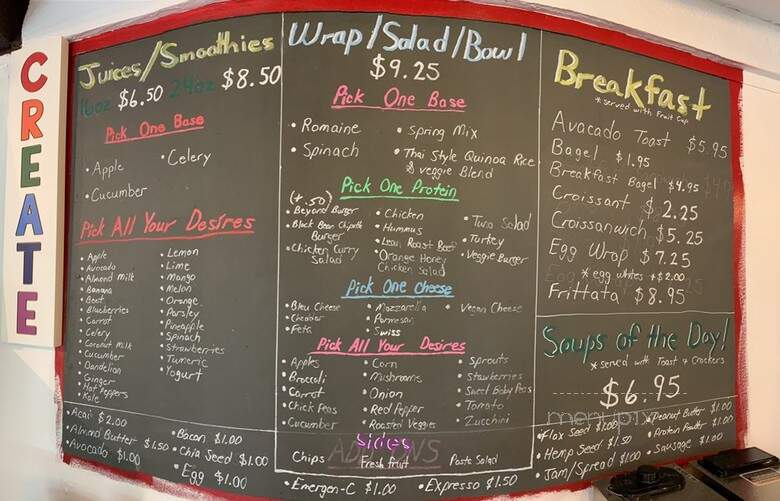 CREATE
Juices/Smoothies
16oz $6.50 24oz $8.50
Pick One Base
• Apple
• Celery
• Cucumber
Pick All Your Desires
Apple
• Avocado
• Almond Milk
• Banana
• Beet
• Blueberries
• Carrot
• Celery
• Coconut Milk
• Cucumber
• Dandelion
• Ginger
• Hot Peppers
• Kale
• Lemon
• Lime
• Mango
• Melon
• Orange
• Parsley
• Pineapple
• Spinach
• Strawberries
• Tumeric
• Yogurt
Wrap/Salad/Bowl
$9.25
Pick One Base
• Romaine
• Spinach
• Spring Mix
• Thai Style Quinoa Rice
& veggie Blend
Pick One Protein
(+.50)
• Beyond Burger
• Black Bean Chipotle
Burger
• Chicken Curry
Salad
• Chicken
• Hummus
• Lean Roast Beef
• Orange Honey
Chicken Salad
• Tuna Salad
• Turkey
• Veggie Burger
Pick One Cheese
• Bleu Cheese
• Cheddar
• Feta
• Mozzarella
• Parmesan
• Swiss
• Vegan Cheese
Pick All Your Desires
• Apples
• Broccoli
• Carrot
• Chick Peas
• Cucumber
• Corn
• Mushrooms
• Onion
• Red Pepper
• Roasted Veggies
• Sprouts
• Strawberries
• Sweet Baby Peas
• Tomato
• Zucchini
Sides
ADD ONS
Chips
Fresh fruit
Pasta Salad
Breakfast
* Served with Fruit Cup
Avacado Toast $5.95
Bagel $1.95
Breakfast Bagel $4.95
Croissant $2.25
Croissanwich $5.25
Egg Wrap $7.25
* egg whites +$2.00
Frittata $8.95
Soups of the Day!
* served with Toast & Crackers
$6.95
menupix
• Acai $2.00
• Almond Butter $1.50
• Avocado $1.00
• Bacon $1.00
• Chia Seed $1.00
• Egg $1.00
• Emergen-C $1.00
• Expresso $1.50
• Flax Seed $1.00
• Hemp Seed $1.50
• Jam/Spread $1.00
• Peanut Butter $1.00
• Protein Powder $1.00
• Sausage $1.00